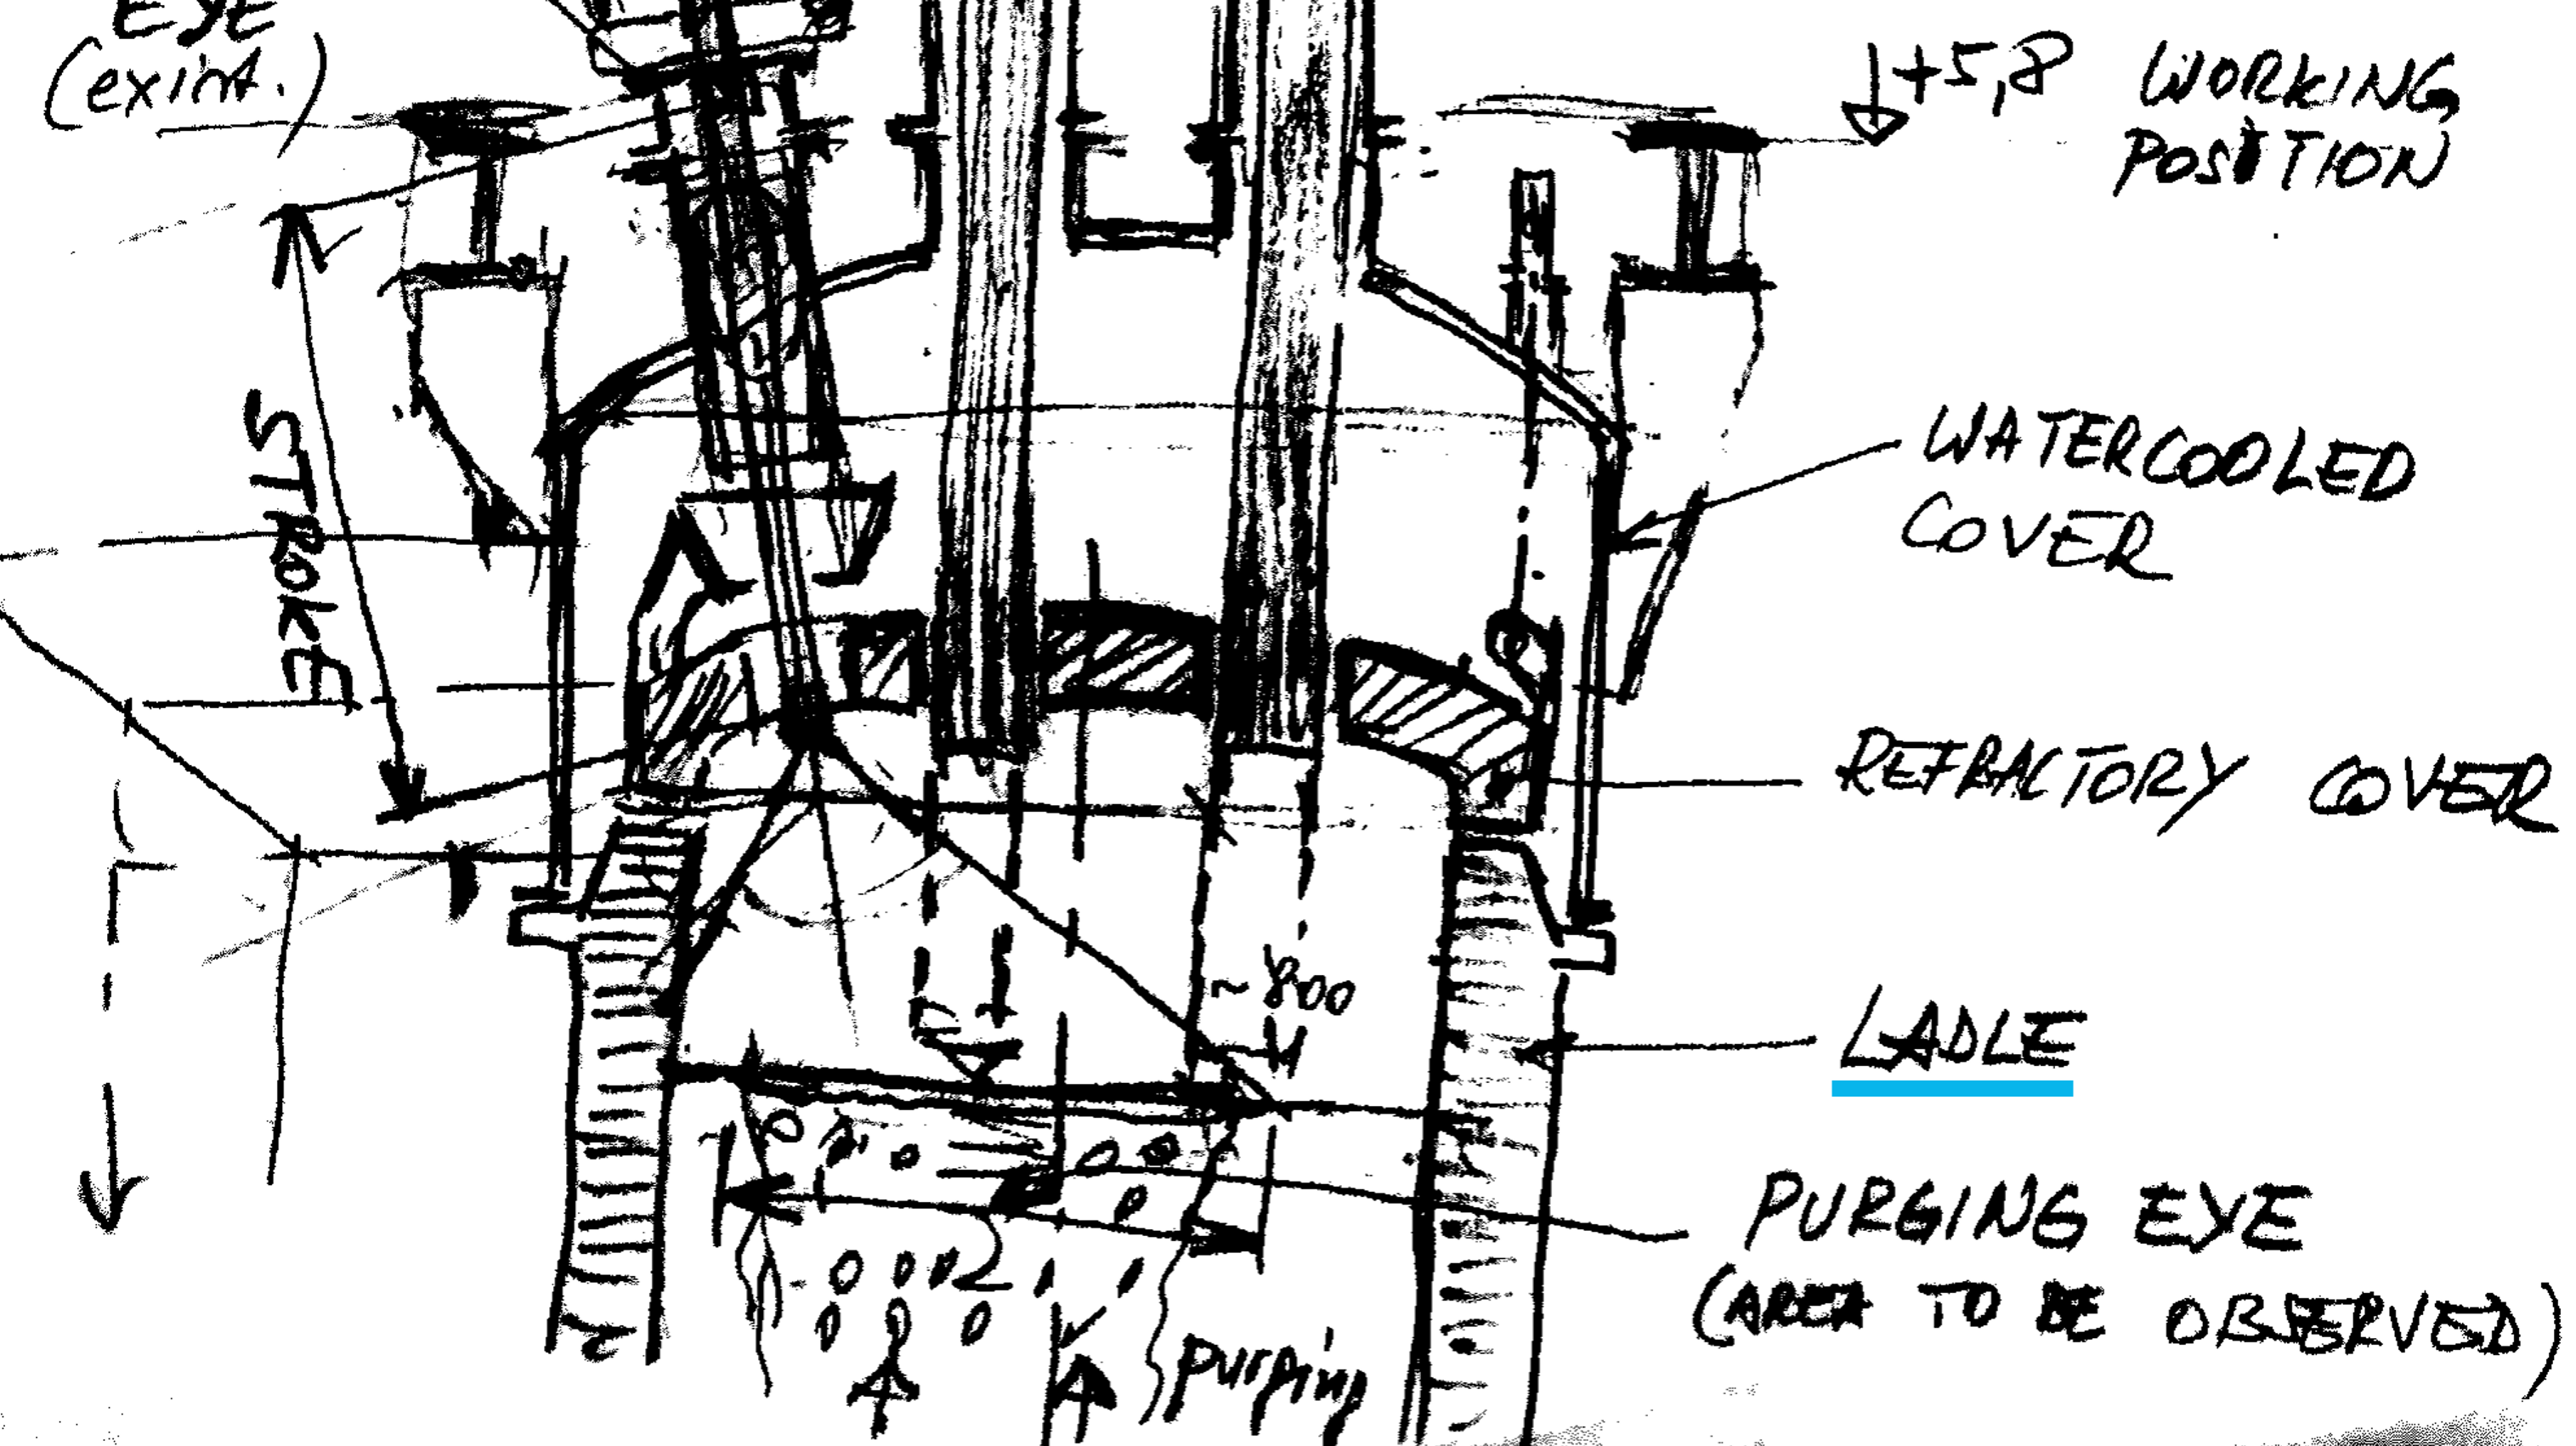 EYE
(exist.)
+5,8 WORKING
POSITION
STROKE
WATERCOOLED
COVER
REFRACTORY COVER
~800
LADLE
PURGING EYE
(AREA TO BE OBSERVED)
purging